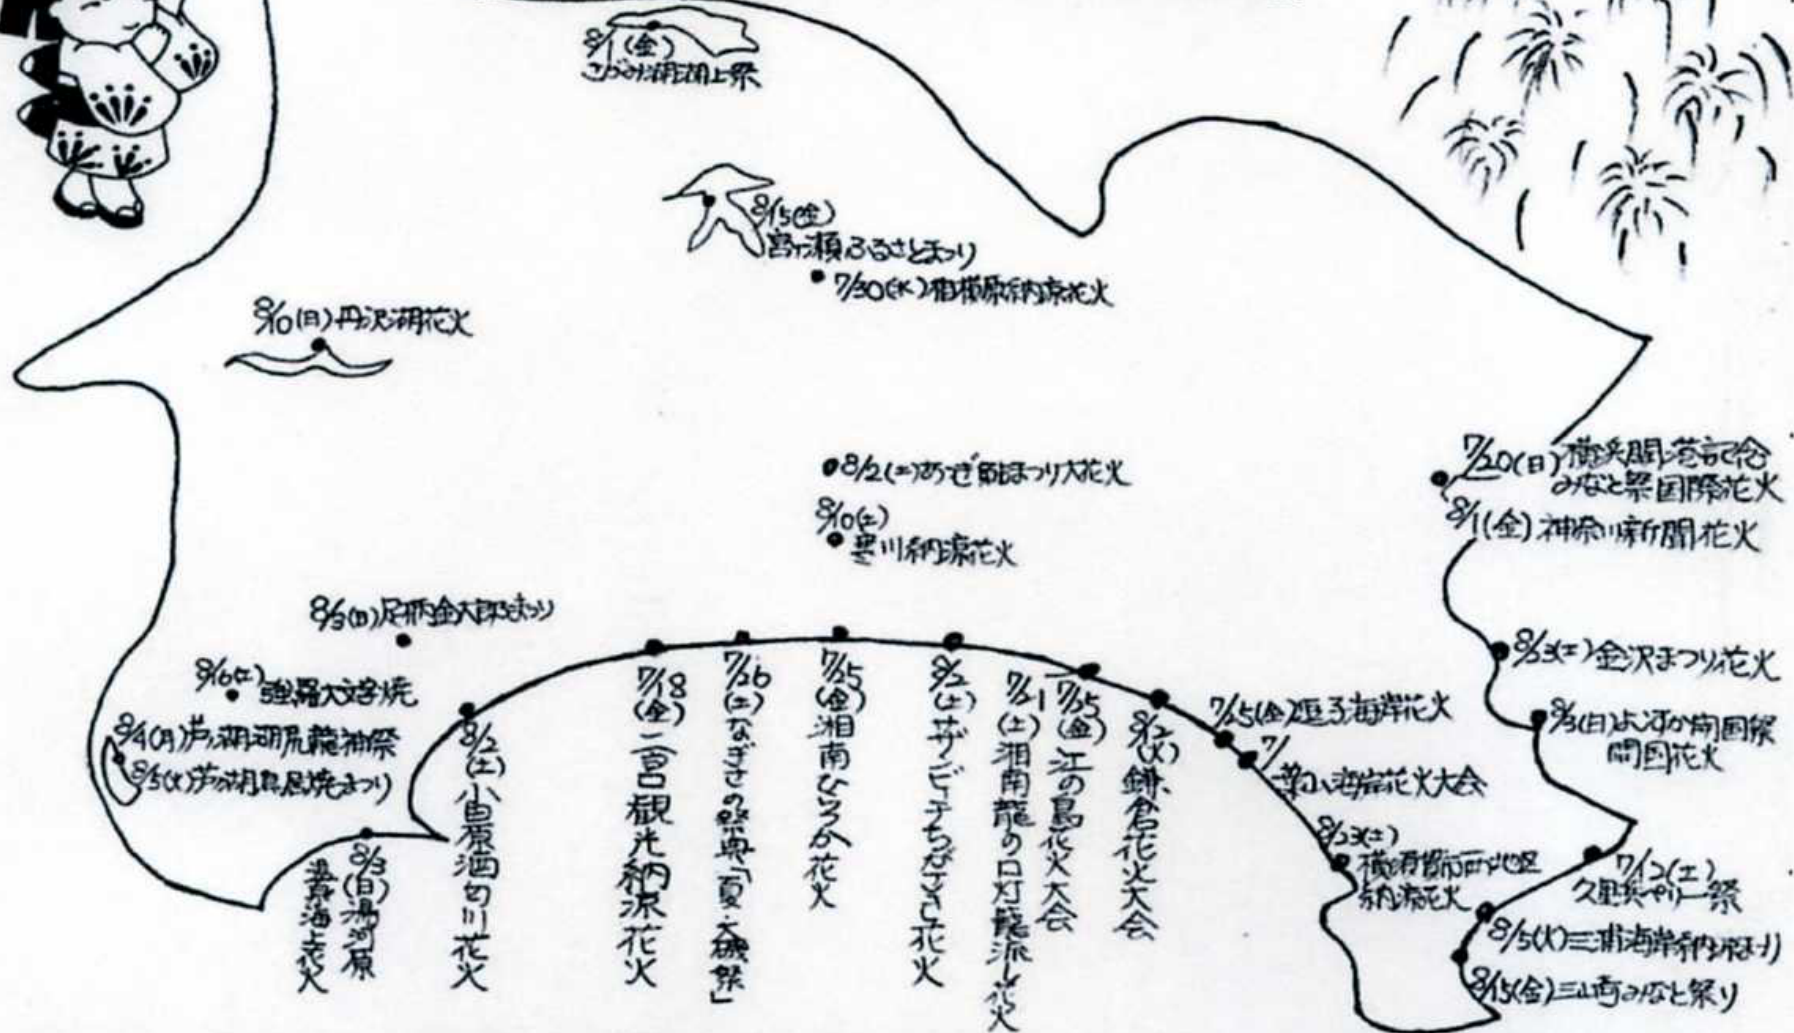 8/1(金)
さがみ湖湖上祭
8/15(金)
宮ヶ瀬ふるさとまつり
7/30(水)相模原納涼花火
8/10(日)丹沢湖花火
8/2(土)あつぎ鮎まつり大花火
8/10(土)
寒川納涼花火
7/20(日)横浜開港記念
みなと祭国際花火
8/1(金)神奈川新聞花火
8/3(日)足柄金太郎まつり
8/16(土)強羅大文字焼
8/4(月)芦ノ湖湖尻龍神祭
8/5(火)芦ノ湖鳥居焼まつり
8/3(日)湯河原
温泉海上花火
8/2(土)小田原酒匂川花火
7/18(金)二宮観光納涼花火
7/26(土)なぎさの祭典「夏・大磯祭」
7/25(金)湘南ひらつか花火
8/2(土)サザンビーチちがさき花火
7/21(土)湘南龍の口灯籠流し花火
7/25(金)江の島花火大会
8/12(火)鎌倉花火大会
7/25(金)逗子海岸花火
7/
葉山海岸花火大会
8/23(土)
横須賀市西地区
納涼花火
8/23(土)金沢まつり花火
8/3(日)よこすか開国祭
開国花火
7/12(土)
久里浜ペリー祭
8/5(火)三浦海岸納涼まつり
8/15(金)三崎みなと祭り